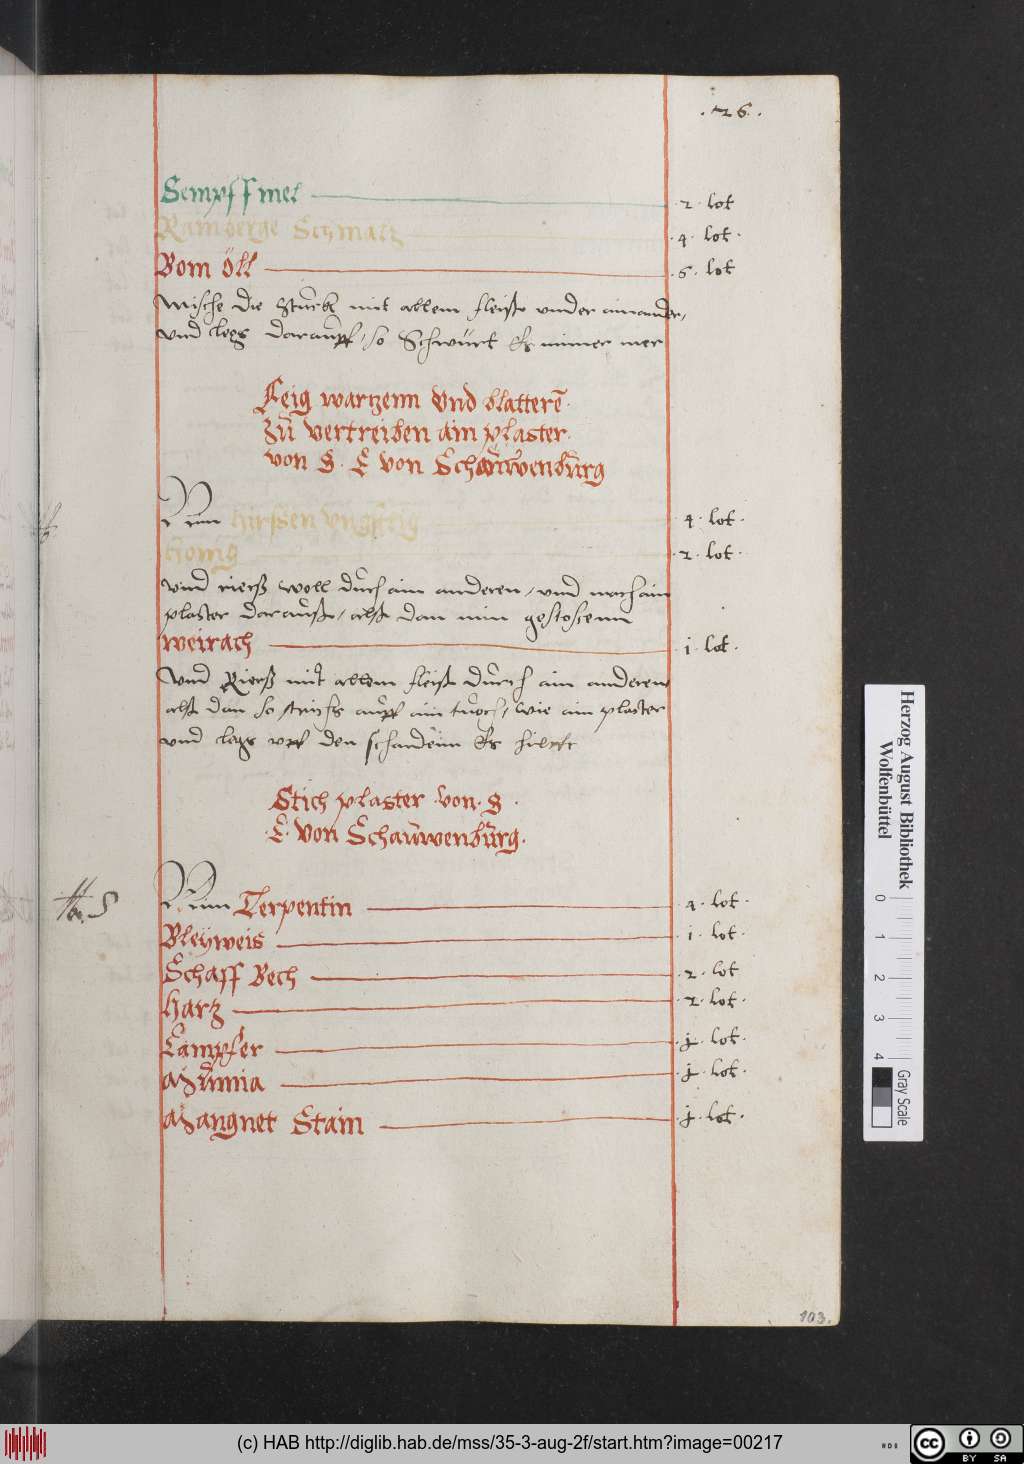 .726.
Sempff mel 2 lot
Ramberge Schmaltz 4 lot
Bom öll 6 lot
Mische die Stuckh mit allem fleiß under ainander,
und legs darauff, so Schwürt Es nimer mer
Feig wartzenn Vnd blatterē
zů vertreiben ain plaster
von g. E von Schauwenburg
Nim hirssen ungsteig 4 lot
Honig 2 lot
und rierß woll durch ain anderen, und mach ain
plaster darauß, alß dan nim gestosenn
weirach i lot
Und Rierß mit allem fleiß durch ain anderen
alß dan so streichs auff ain tuoch, wie ain plaster
und legs uff den schaden Es hilfft
Stich plaster von g
E. von Schauwenburg.
Nim Terpentin 4 lot
Bleyweis i lot
Schaff Bech 2 lot
Harz 2 lot
Campfer j lot
Mumia j lot
Mangnet Stain j lot
103.
Herzog August Bibliothek
Wolfenbüttel
0 1 2 3 4
Gray Scale
(c) HAB http://diglib.hab.de/mss/35-3-aug-2f/start.htm?image=00217
cc BY SA